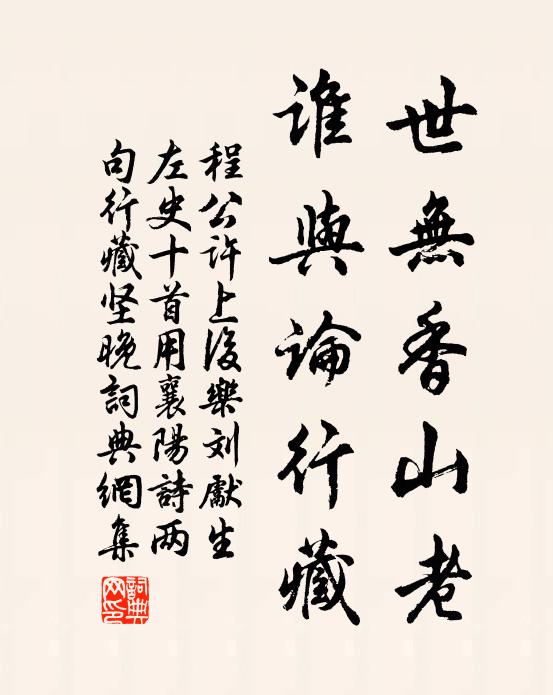 世無香山老
誰與論行藏
程公許上後樂刘獻生
左史十首用襄陽詩两
句行藏坚晚詞典網集
詞典网印